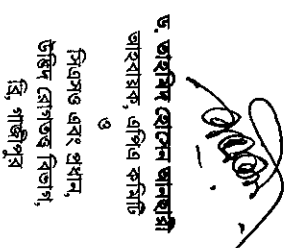 ড. তাহমিদ হোসেন আনছারী
আহবায়ক, এপিএ কমিটি
ও
সিএসও এবং প্রধান,
উদ্ভিদ রোগতত্ত্ব বিভাগ,
ব্রি, গাজীপুর